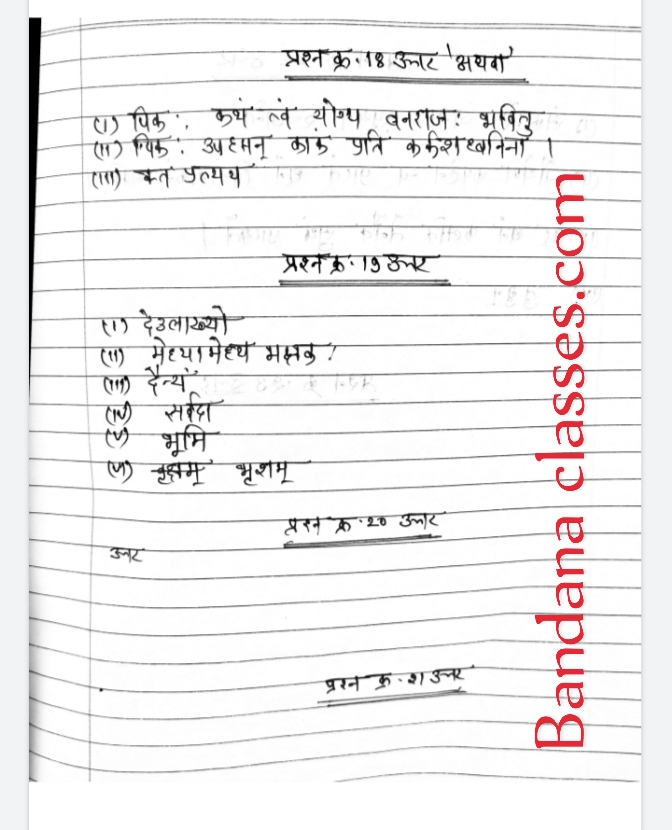 प्रश्न क्र. 18 उत्तर 'अथवा'
(i) पिक: . कथं त्वं योग्य वनराज: भवितु
(ii) पिक: उपहसन् काकं प्रति कर्कशध्वनिना ।
(iii) क्त प्रत्यय
प्रश्न क्र. 19 उत्तर
(i) देउलाख्यो
(ii) मेध्यामेध्य भक्षक:
(iii) दैन्यं
(iv) सर्वदा
(v) भूमि
(vi) भृशम्
प्रश्न क्र. 20 उत्तर
उत्तर
प्रश्न क्र. 21 उत्तर
Bandana classes.com